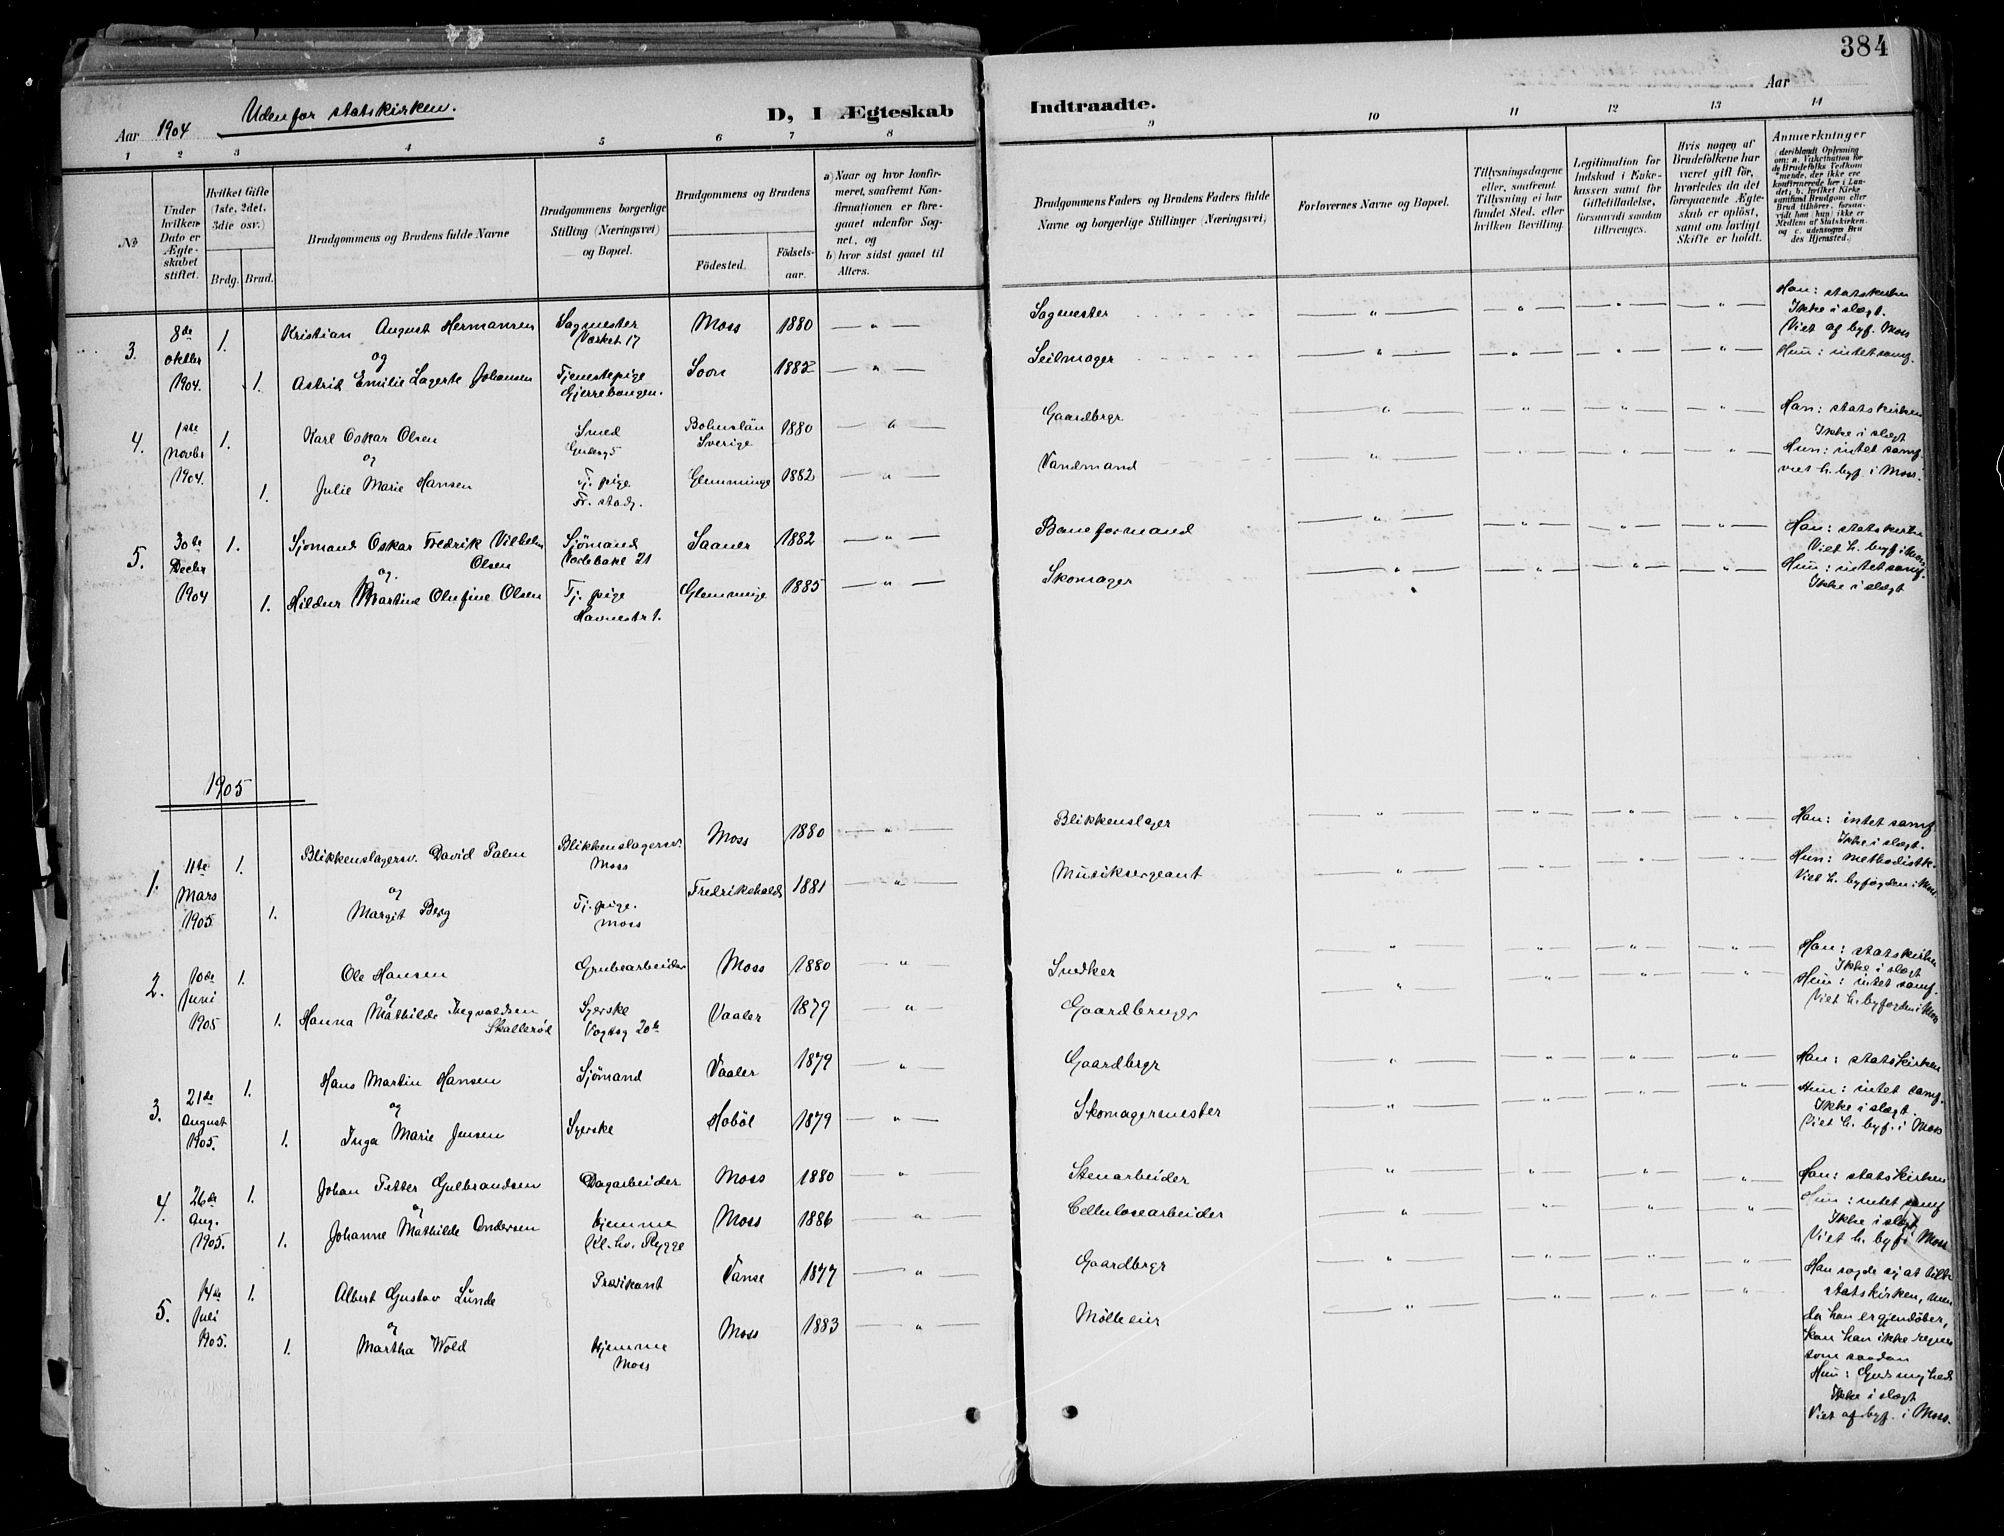 384
Aar 1904 Udenfor statskirken. D, I Ægteskab Indtraadte. Aar
1 2 3 4 5 6 7 8 9 10 11 12 13 14
No
Under hvilken Dato er Ægteskabet stiftet.
Hvilket Gifte (1ste, 2det, 3die osv.)
Brdg. Brud.
Brudgommens og Brudens fulde Navne
Brudgommens borgerlige Stilling (Næringsvei) og Bopæl.
Brudgommens og Brudens
Fødested. Fødselsaar.
a) Naar og hvor konfirmeret, saafremt Konfirmationen er foregaaet udenfor Sognet, og
b) hvor sidst gaaet til Alters.
Brudgommens Faders og Brudens Faders fulde Navne og borgerlige Stillinger (Næringsvei)
Forlovernes Navne og Bopæl.
Tillysningsdagene eller, saafremt Tillysning ei har fundet Sted, efter hvilken Bevilling.
Legitimation for Indskud i Enkekassen samt for Giftetilladelse, forsaavidt saadan tiltrænges.
Hvis nogen af Brudefolkene har været gift før, hvorledes da det foregaaende Ægteskab er opløst, samt om lovligt Skifte er holdt.
Anmærkninger
3. 8de oktbr 1904. 1. Kristian August Hermansen Sagmester Værket 17 Moss 1880 Sagmester Han: statskirken
Ikke i slægt.
Viet af byf. Moss
og
1. Astrid Emilie Lagerte Johansen Tjenestepige Gjerrebongen. Soon 1882 Seilmager Hun: intet samf.
4. 1ste Novbr 1904. 1. Karl Oskar Olsen Smed Bohuslän Sverige 1880 Gaardbrgr Han: statskirken
Ikke i slægt
og
1. Julie Marie Hansen Tj. pige Fr. stad. Glemminge 1882 Vandmand Hun: intet samf.
viet h. byf. i Moss.
5. 30te Decbr 1904 1. Sjømand Oskar Fredrik Vilhelm Olsen Sjømand Vaaner 1882 Baneformand Han: statskirke
Viet h. byf. i Moss
og
1. Hildur Martine Olufine Olsen Tj. pige Havnestr 1. Glemminge 1885 Skomager Hun: intet samf.
Ikke i slægt
1905
1. 11te Mars 1905 1. Blikkenslagersv. David Palm Blikkenslagersv. Moss Moss 1880 Blikkenslager Han: intet samf.
Ikke i slægt.
og
1. Margit Berg Tj. pige. Moss Fredrikshald 1881 Musiksergeant Hun: methodistk.
Viet h. byfogden i Moss.
2. 10de Juni 1905 1. Ole Hansen Grubearbeider Moss 1880 Snedker Han: statskirken
Ikke i slægt
og
1. Hanna Mathilde Ingvaldsen Skallerød Syerske Vogtsg 20b Vaaler 1879 Gaardbruger Hun: intet samf.
Viet h. byfogden i Moss
3. 21de August 1905. 1. Hans Martin Hansen Sjømand Vaaler 1879 Gaardbrgr Han: statskirken
og
1. Inga Marie Jensen Syerske Hobøl 1879 Skomagermester Hun: intet samf.
Ikke i slægt.
Viet h. byf. i Moss
4. 26de Aug. 1905. 1. Johan Petter Gulbrandsen Dagarbeider Moss 1880 Stenarbeider Han: statskirken
og
1. Johanne Mathilde Andersen hjemme Kl. hv. Rygge Moss 1886 Cellulosearbeider Hun: intet samf
Ikke i slægt
Viet h. byf i Moss
5. 14de Juli 1905. 1. Albert Gustav Lunde Prædikant Vanse 1877 Gaardbrgr Han sagde sig at tilh.
statskirken, men
da han er gjendøber,
kan han ikke regnes
som saadan
og
1. Martha Wold hjemme Moss Moss 1883 Mølleeier Hun:
Ikke i slægt
Viet af byf. i Moss.